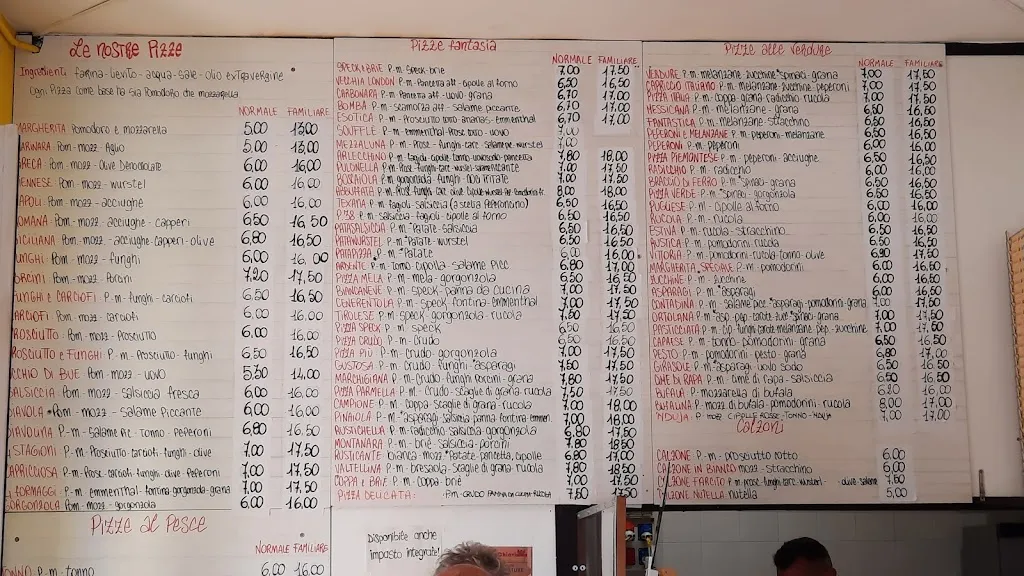 Le nostre Pizze
Ingredienti farina-lievito-acqua-sale-olio extravergine
ogni Pizza come base ha sia Pomodoro che mozzarella
NORMALE FAMILIARE
MARGHERITA Pomodoro e mozzarella 5,00 13,00
MARINARA Pom-mozz-Aglio 5,00 13,00
GRECA Pom-mozz-olive Denocciolate 6,00 16,00
VIENNESE Pom-mozz-wurstel 6,00 16,00
NAPOLI Pom-mozz-acciughe 6,00 16,00
ROMANA Pom-mozz-acciughe-capperi 6,50 16,50
SICILIANA Pom-mozz-acciughe-capperi-olive 6,80 16,50
FUNGHI Pom-mozz-funghi 6,00 16,00
PORCINI Pom-mozz-Porcini 7,20 17,50
FUNGHI e CARCIOFI P-m-funghi-carciofi 6,50 16,50
CARCIOFI Pom-mozz-carciofi 6,00 16,00
PROSCIUTTO Pom-mozz-Prosciutto 6,00 16,00
PROSCIUTTO e FUNGHI P-m-Prosciutto-funghi 6,50 16,50
OCCHIO DI BUE Pom-mozz-uovo 5,30 14,00
SALSICCIA Pom-mozz-salsiccia fresca 6,00 16,00
DIAVOLA Pom-mozz-salame Piccante 6,00 16,00
DIAVOLINA P-m-Salame Pic-Tonno-Peperoni 6,80 16,50
4 STAGIONI P-m-Prosciutto-carciofi-funghi-olive 7,00 17,50
CAPRICCIOSA P-m-Prosc-carciofi-funghi-olive-Peperoni 7,00 17,50
4 FORMAGGI P-m-emmenthal-fontina-gorgonzola-grana 7,00 17,50
GORGONZOLA Pom-mozz-gorgonzola 6,00 16,00
Pizze al Pesce
NORMALE FAMILIARE
TONNO P-m-tonno 6,00 16,00
Pizze fantasia
NORMALE FAMILIARE
SPECK E BRIE P-m-Speck-brie 7,00 17,50
VECCHIA LONDON P-m-Pancetta aff-cipolle al forno 6,50 16,50
CARBONARA P-m-Pancetta aff-uovo-grana 6,70 17,00
BOMBA P-m-scamorza aff-salame piccante 6,70 17,00
ESOTICA P-m-Prosciutto cotto-ananas-emmenthal 6,70 17,00
SOUFFLÈ P-m-emmenthal-Prosc cotto-uovo 7,00
MEZZALUNA P-m-Prosc-funghi-carc-salame pic-wurstel 7,00
ARLECCHINO P-m-fagioli-cipolle-tonno-uovo sodo-pancetta 7,80 18,00
PULCINELLA P-m-Prosc-funghi-carc-wurstel-salame piccante 7,00 17,50
BOSCAIOLA P-m gorgonzola-funghi-noci tritate 7,00 17,50
8,00 18,00
TEXANA P-m-fagioli-salsiccia (a scelta Peperoncino) 6,50 16,50
P38 P-m-salsiccia-fagioli-cipolle al forno 6,50 16,50
PATASALSICCIA P-m-Patate-salsiccia 6,50 16,50
PATAWURSTEL P-m-Patate-wurstel 6,50 16,50
PATAPIZZA P-m-*Patate 6,00 16,00
ARDENTE P-m-tonno cipolla-salame Picc 6,80 17,00
PIZZA MELA P-m-mela-gorgonzola 6,50 16,50
BIANCANEVE P-m-speck-panna da cucina 7,00 17,50
CENERENTOLA P-m-speck-fontina-emmenthal 7,00 17,50
TIROLESE P-m-speck-gorgonzola-rucola 7,50 17,50
PIZZA SPECK P-m-speck 6,50 16,50
PIZZA CRUDO P-m-Crudo 6,50 16,50
PIZZA PIÙ P-m-crudo-gorgonzola 7,00 17,50
GUSTOSA P-m-Crudo-funghi-asparagi 7,50 17,50
MARCHIGIANA P-m-Crudo-funghi Porcini-grana 7,80 17,50
PIZZA PARMELLA P-m-Crudo-scaglie di grana-rucola 7,50 17,50
CAMPIONE P-m-Coppa-scaglie di grana-rucola 7,00 18,00
PINNOLA P-m-*asparagi-salsiccia-panna-fontina-emmen. 7,00 18,00
RUSTICHELLA P-m-radicchio salsiccia gorgonzola 6,80 17,50
MONTANARA P-m-brie-salsiccia-porcini 7,80 18,50
RUSTICANTE bianca-mozz-*Patate-pancetta, cipolle 6,80 17,00
VALTELLINA P-m-bresaola-scaglie di grana-rucola 7,80 18,50
COPPA E BRIE P-m-Coppa-brie 7,00 17,50
PIZZA DELICATA: P-M-CRUDO PANNA DA CUCINA-RUCOLA 7,50 17,50
Disponibile anche
impasto integrale!
Pizze alle verdure
NORMALE FAMILIARE
VERDURE P-m-melanzane-zucchine-*spinaci-grana 7,00 17,50
CAPRICCIO ITALIANO P-m-melanzane-zucchine-peperoni 7,00 17,50
PIZZA ITALIA P-m-coppa-grana radicchio-rucola 7,00 17,50
MESSICANA P-m-melanzane-grana 6,50 16,50
FANTASTICA P-m-melanzane-stracchino 6,50 16,50
PEPERONI E MELANZANE P-m-peperoni-melanzane 6,50 16,50
PEPERONI P-m-peperoni 6,00 16,00
PIZZA PIEMONTESE P-m-peperoni-acciughe 6,50 16,50
RADICCHIO P-m-radicchio 6,00 16,00
BRACCIO DI FERRO P-m-*spinaci-grana 6,50 16,50
PIZZA VERDE P-m-*Spinaci-gorgonzola 6,50 16,50
PUGLIESE P-m-cipolle al forno 6,00 16,00
RUCOLA P-m-rucola 6,00 16,00
ESTIVA P-m-rucola-stracchino 6,50 16,50
RUSTICA P-m-pomodorini-rucola 6,50 16,50
VITTORIA P-m-pomodorini-rucola-tonno-olive 6,90 17,50
MARGHERITA SPECIALE P-m-pomodorini 6,00 16,00
ZUCCHINE P-m-zucchine 6,00 16,00
ASPARAGI P-m-*asparagi 6,00 16,00
CONTADINA P-m-salame picc-*asparagi-pomodorini-grana 7,00 17,50
ORTOLANA P-m-*asp-pep-carote-zuc-*spinaci-grana 7,00 17,50
PASTICCIATA P-m-cip-funghi-carote-melanzane-pep-zucchine 7,00 17,50
CAPRESE P-m-tonno-pomodorini-grana 6,50 16,50
PESTO P-m-pomodorini-pesto-grana 6,80 17,00
GIRASOLE P-m-*asparagi uovo sodo 6,50 16,50
CIME DI RAPA P-m-*cime di rapa-salsiccia 6,50 16,50
BUFALA P-m-mozzarella di bufala 6,20 16,00
BUFALINA P-mozz di bufala-pomodorini-rucola 7,00 17,00
N'DUJA P-mozz CIPOLLE ROSSE-TONNO-N'DUJA 7,00 17,00
Calzoni
CALZONE P-m-prosciutto cotto 6,00
CALZONE IN BIANCO mozz-stracchino 6,00
CALZONE FARCITO P-m prosc-funghi-carc-wurstel-olive-salame 7,50
CALZONE NUTELLA nutella 5,00